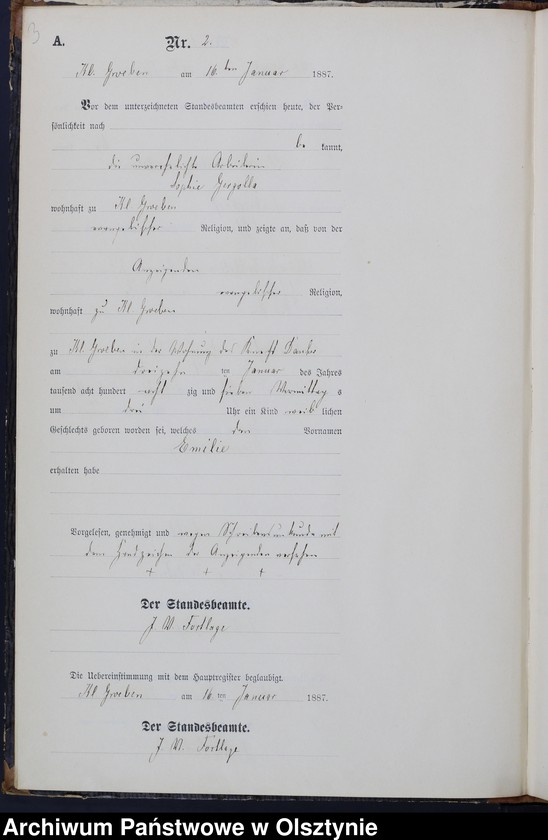 3
A.
Nr. 2.
Kl. Groeben am 16. ten Januar 1887.
Vor dem unterzeichneten Standesbeamten erschien heute, der Per-
sönlichkeit nach
be kannt,
die unverehelichte Arbeiterin
Sophie
wohnhaft zu Kl Groeben
evangelischer Religion, und zeigte an, daß von der
Anzeigenden
evangelischer Religion,
wohnhaft zu Kl. Groeben
zu Kl. Groeben in der Wohnung des Knecht
am dreizehn ten Januar des Jahres
tausend acht hundert acht zig und sieben Vormittag s
um drei Uhr ein Kind weib lichen
Geschlechts geboren worden sei, welches den Vornamen
Emilie
erhalten habe
Vorgelesen, genehmigt und wegen Schreibensunkunde mit
dem Handzeichen der Anzeigenden versehen
+ + +
Der Standesbeamte.
J. W. Fortlage
Die Uebereinstimmung mit dem Hauptregister beglaubigt.
Kl Groeben am 16 ten Januar 1887.
Der Standesbeamte.
J. W. Fortlage
Archiwum Państwowe w Olsztynie